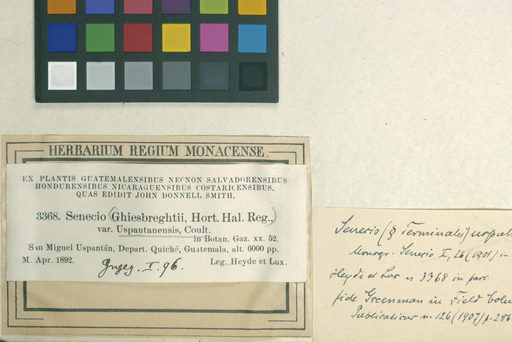 HERBARIUM REGIUM MONACENSE.
EX PLANTIS GUATEMALENSIBUS NECNON SALVADORENSIBUS
HONDURENSIBUS NICARAGUENSIBUS COSTARICENSIBUS,
QUAS EDIDIT JOHN DONNELL SMITH.
3368. Senecio (Ghiesbreghtii, Hort. Hal. Reg.,)
var. Uspantanensis, Coult.
in Botan. Gaz. xx. 52.
San Miguel Uspantán, Depart. Quiché, Guatemala, alt. 6000 pp.
M. Apr. 1892. Leg. Heyde et Lux.
I. 96.
Senecio (§ Terminales)
Monogr. Senecio I, 26 (1901) in
Heyde et Lux n 3368 in part
fide Greenman in Field Colu
Publications n. 126 (1907) p. 286